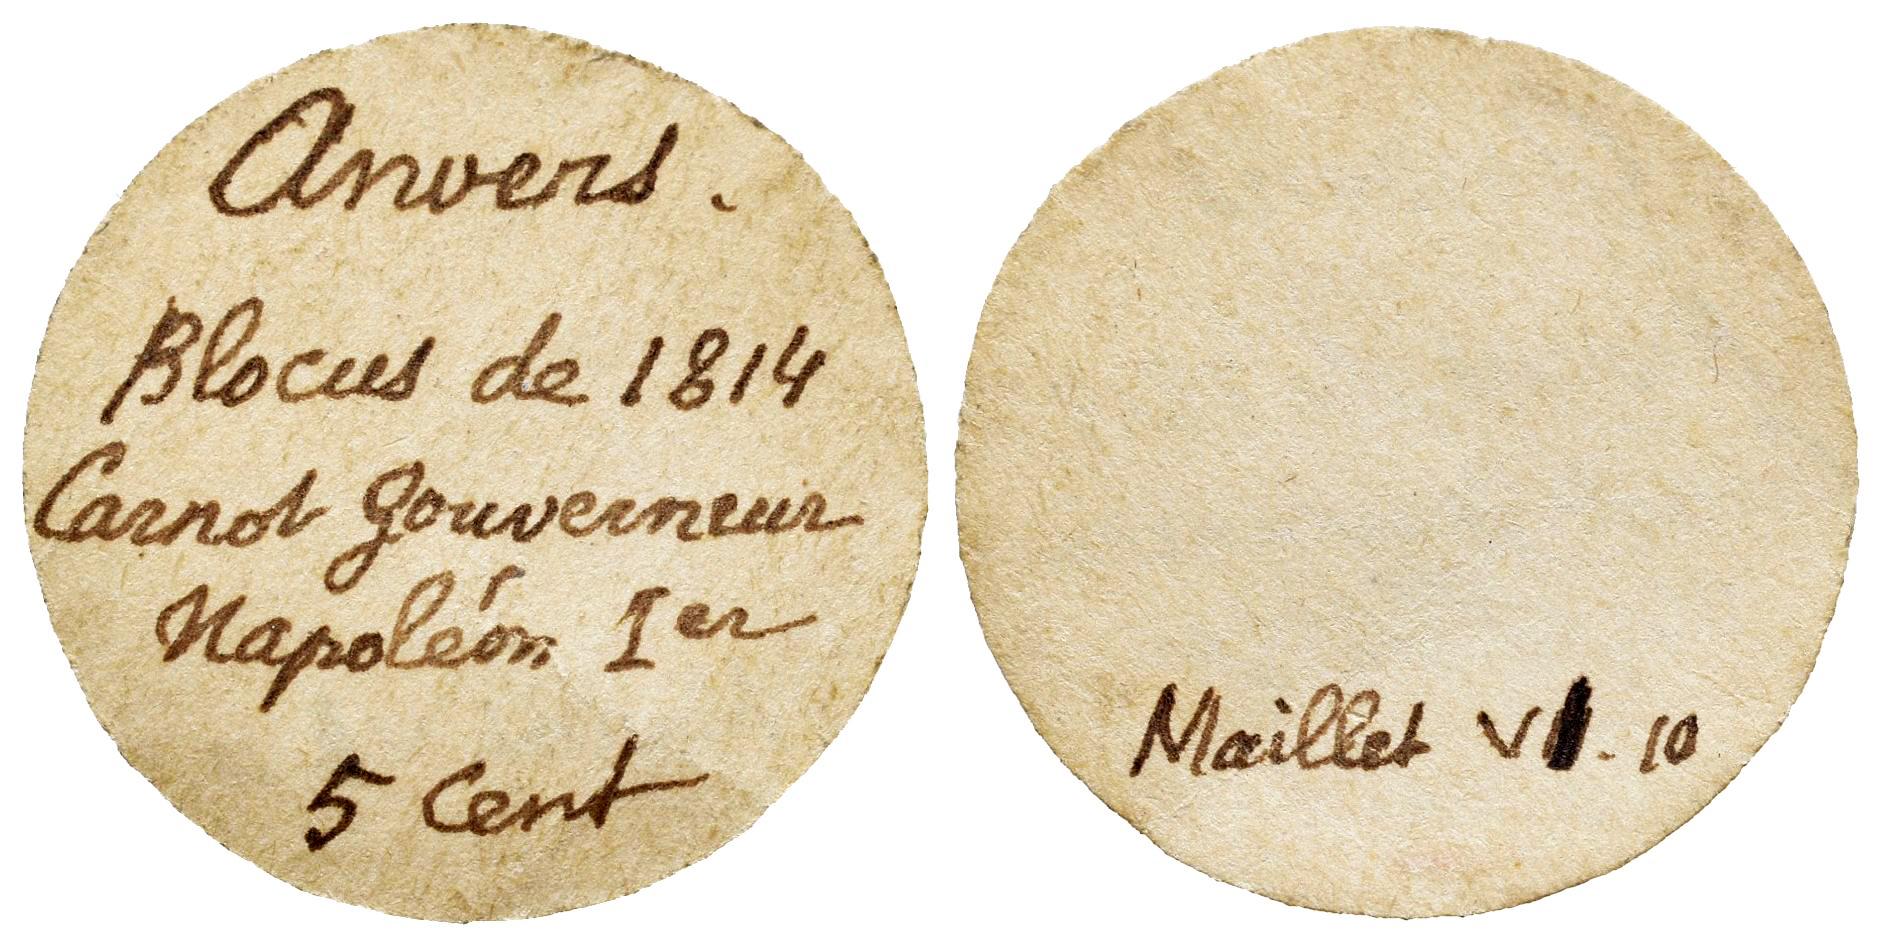 Anvers.
Blocus de 1814
Carnot gouverneur
Napoléon Ier
5 Cent
Maillet VI. 10